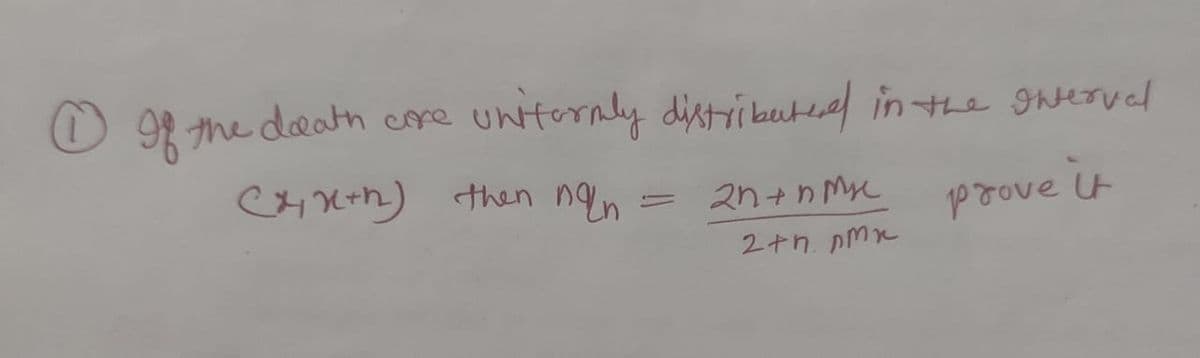 ① If the death are uniformly distributed in the interval
(x, x+n) then nqn = 2n+nmx / 2+n.nmx prove it